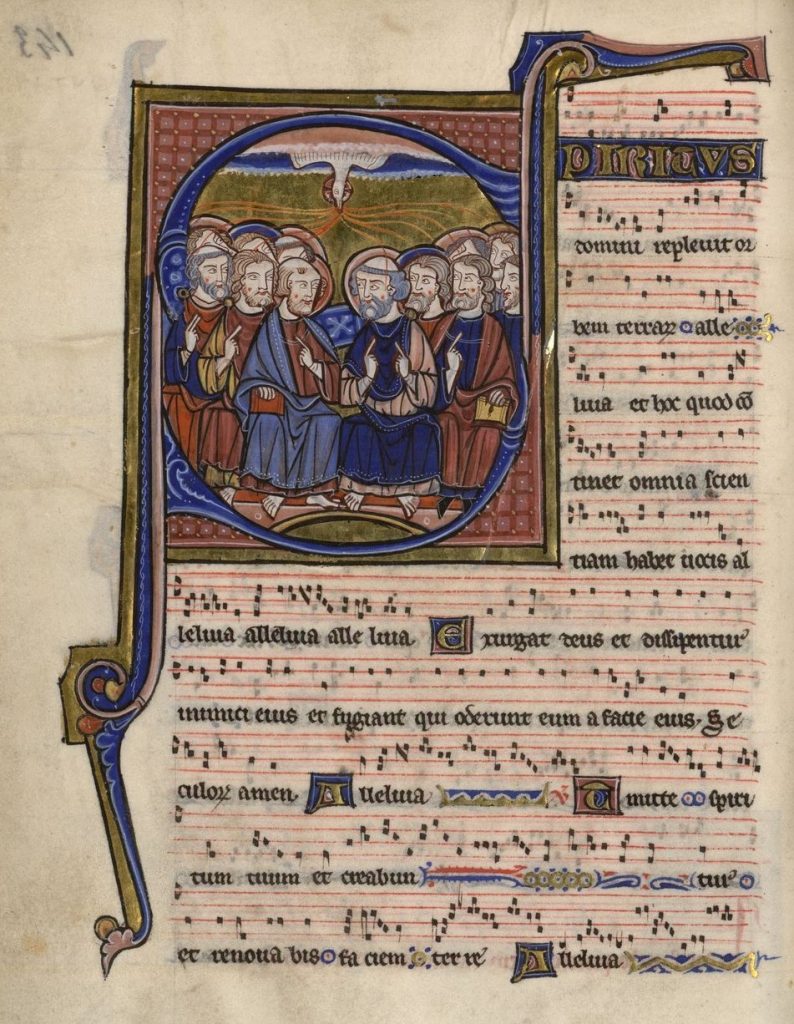 143
SPIRITVS
domini repleuit or
bem terrarꝝ alle
luia et hoc quod cō
tinet omnia scien
tiam habet uocis al
leluia alleluia alle luia Exurgat deus et dissipentur
inimici eius et fugiant qui oderunt eum a facie eius. Se
culorꝝ amen Alleluia ℣ Emitte spiri
tum tuum et creabun tur
et renoua bis fa ciem ter re Alleluia